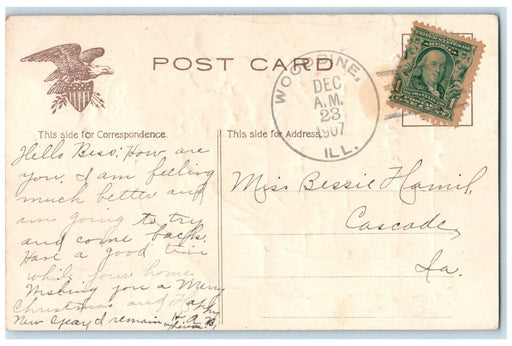 POST CARD
WOODBINE,
DEC
A.M.
23
1907
ILL.
This side for Correspondence.
This side for Address.
Hello Bess: How are
you. I am feeling
much better and
am going to try
and come back.
Have a good time
while your home.
Wishing you a Merry
Christmas and Happy
New Year, I remain
Miss Bessie Hamil,
Cascade,
Ia.